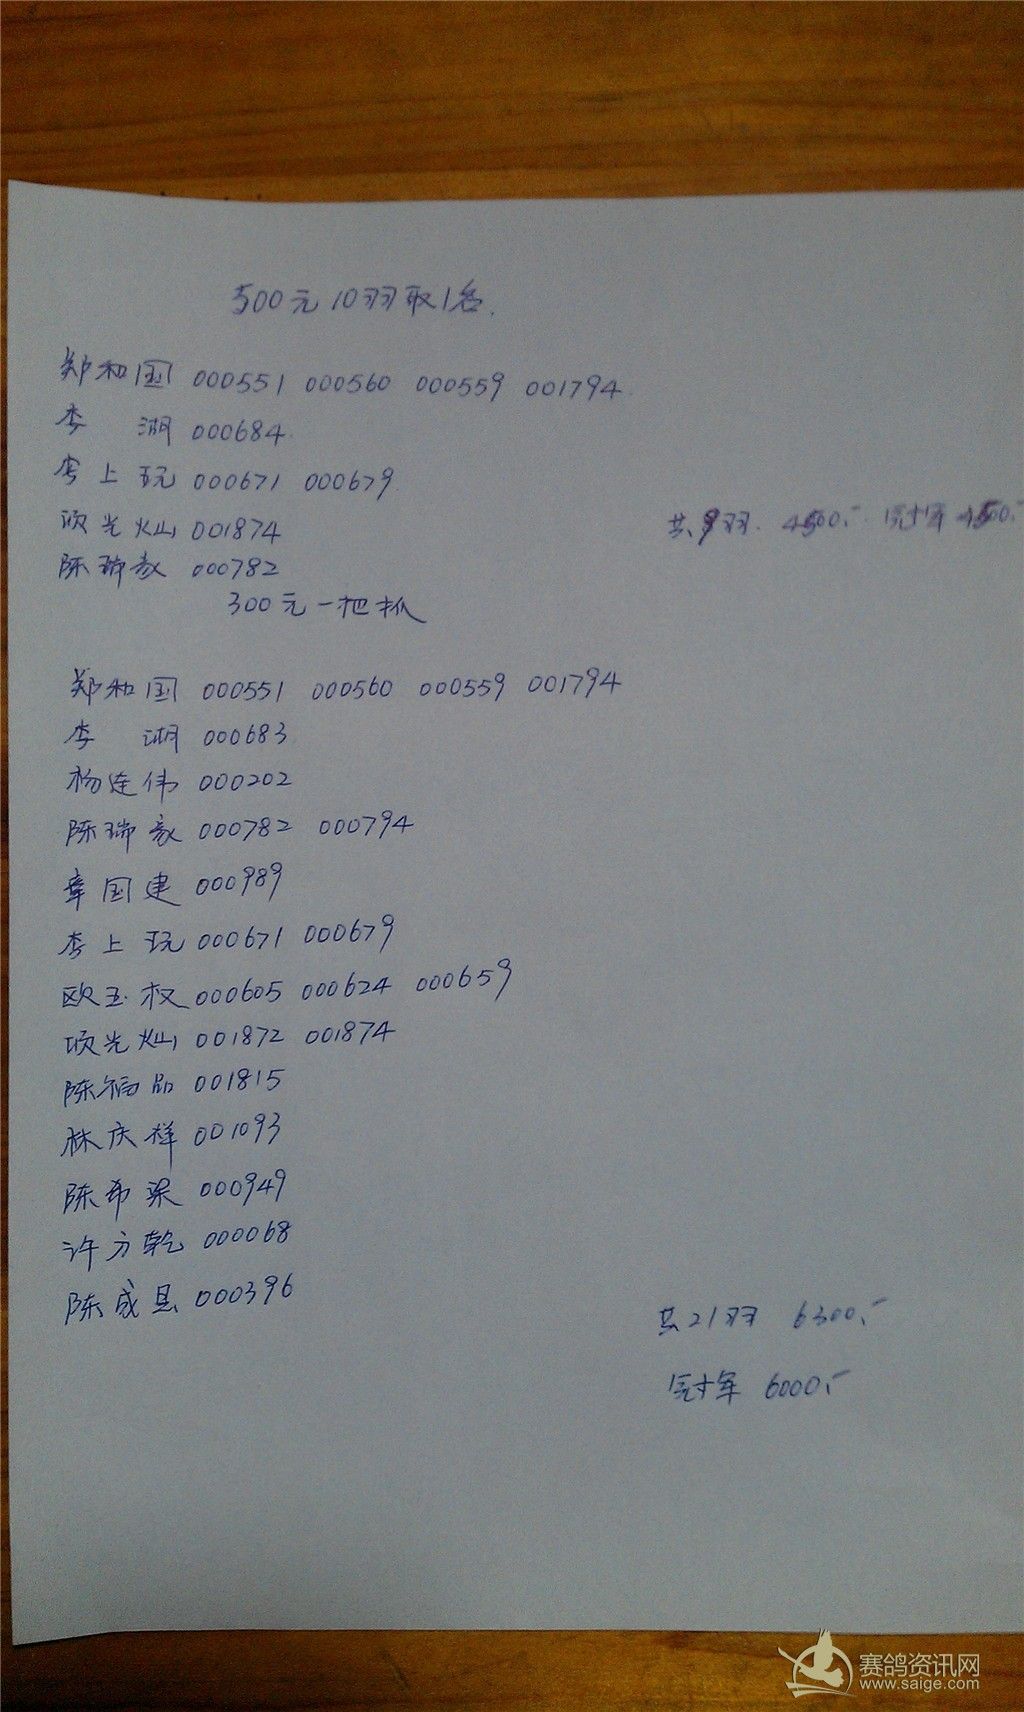 500元10羽取1名.
郑和国 000551 000560 000559 001794
李 湖 000684
李上玩 000671 000679
项光灿 001874
共9羽. 4500.- 冠军 4500.-
陈瑞敖 000782
300元一把抓
郑和国 000551 000560 000559 001794
李 湖 000683
杨连伟 000202
陈瑞敖 000782 000794
章国建 000989
李上玩 000671 000679
欧玉权 000605 000624 000659
项光灿 001872 001874
陈福品 001815
林庆祥 001093
陈希梁 000949
许方乾 000068
陈成昆 000396
共21羽 6300.-
冠军 6000.-
赛鸽资讯网
www.saige.com